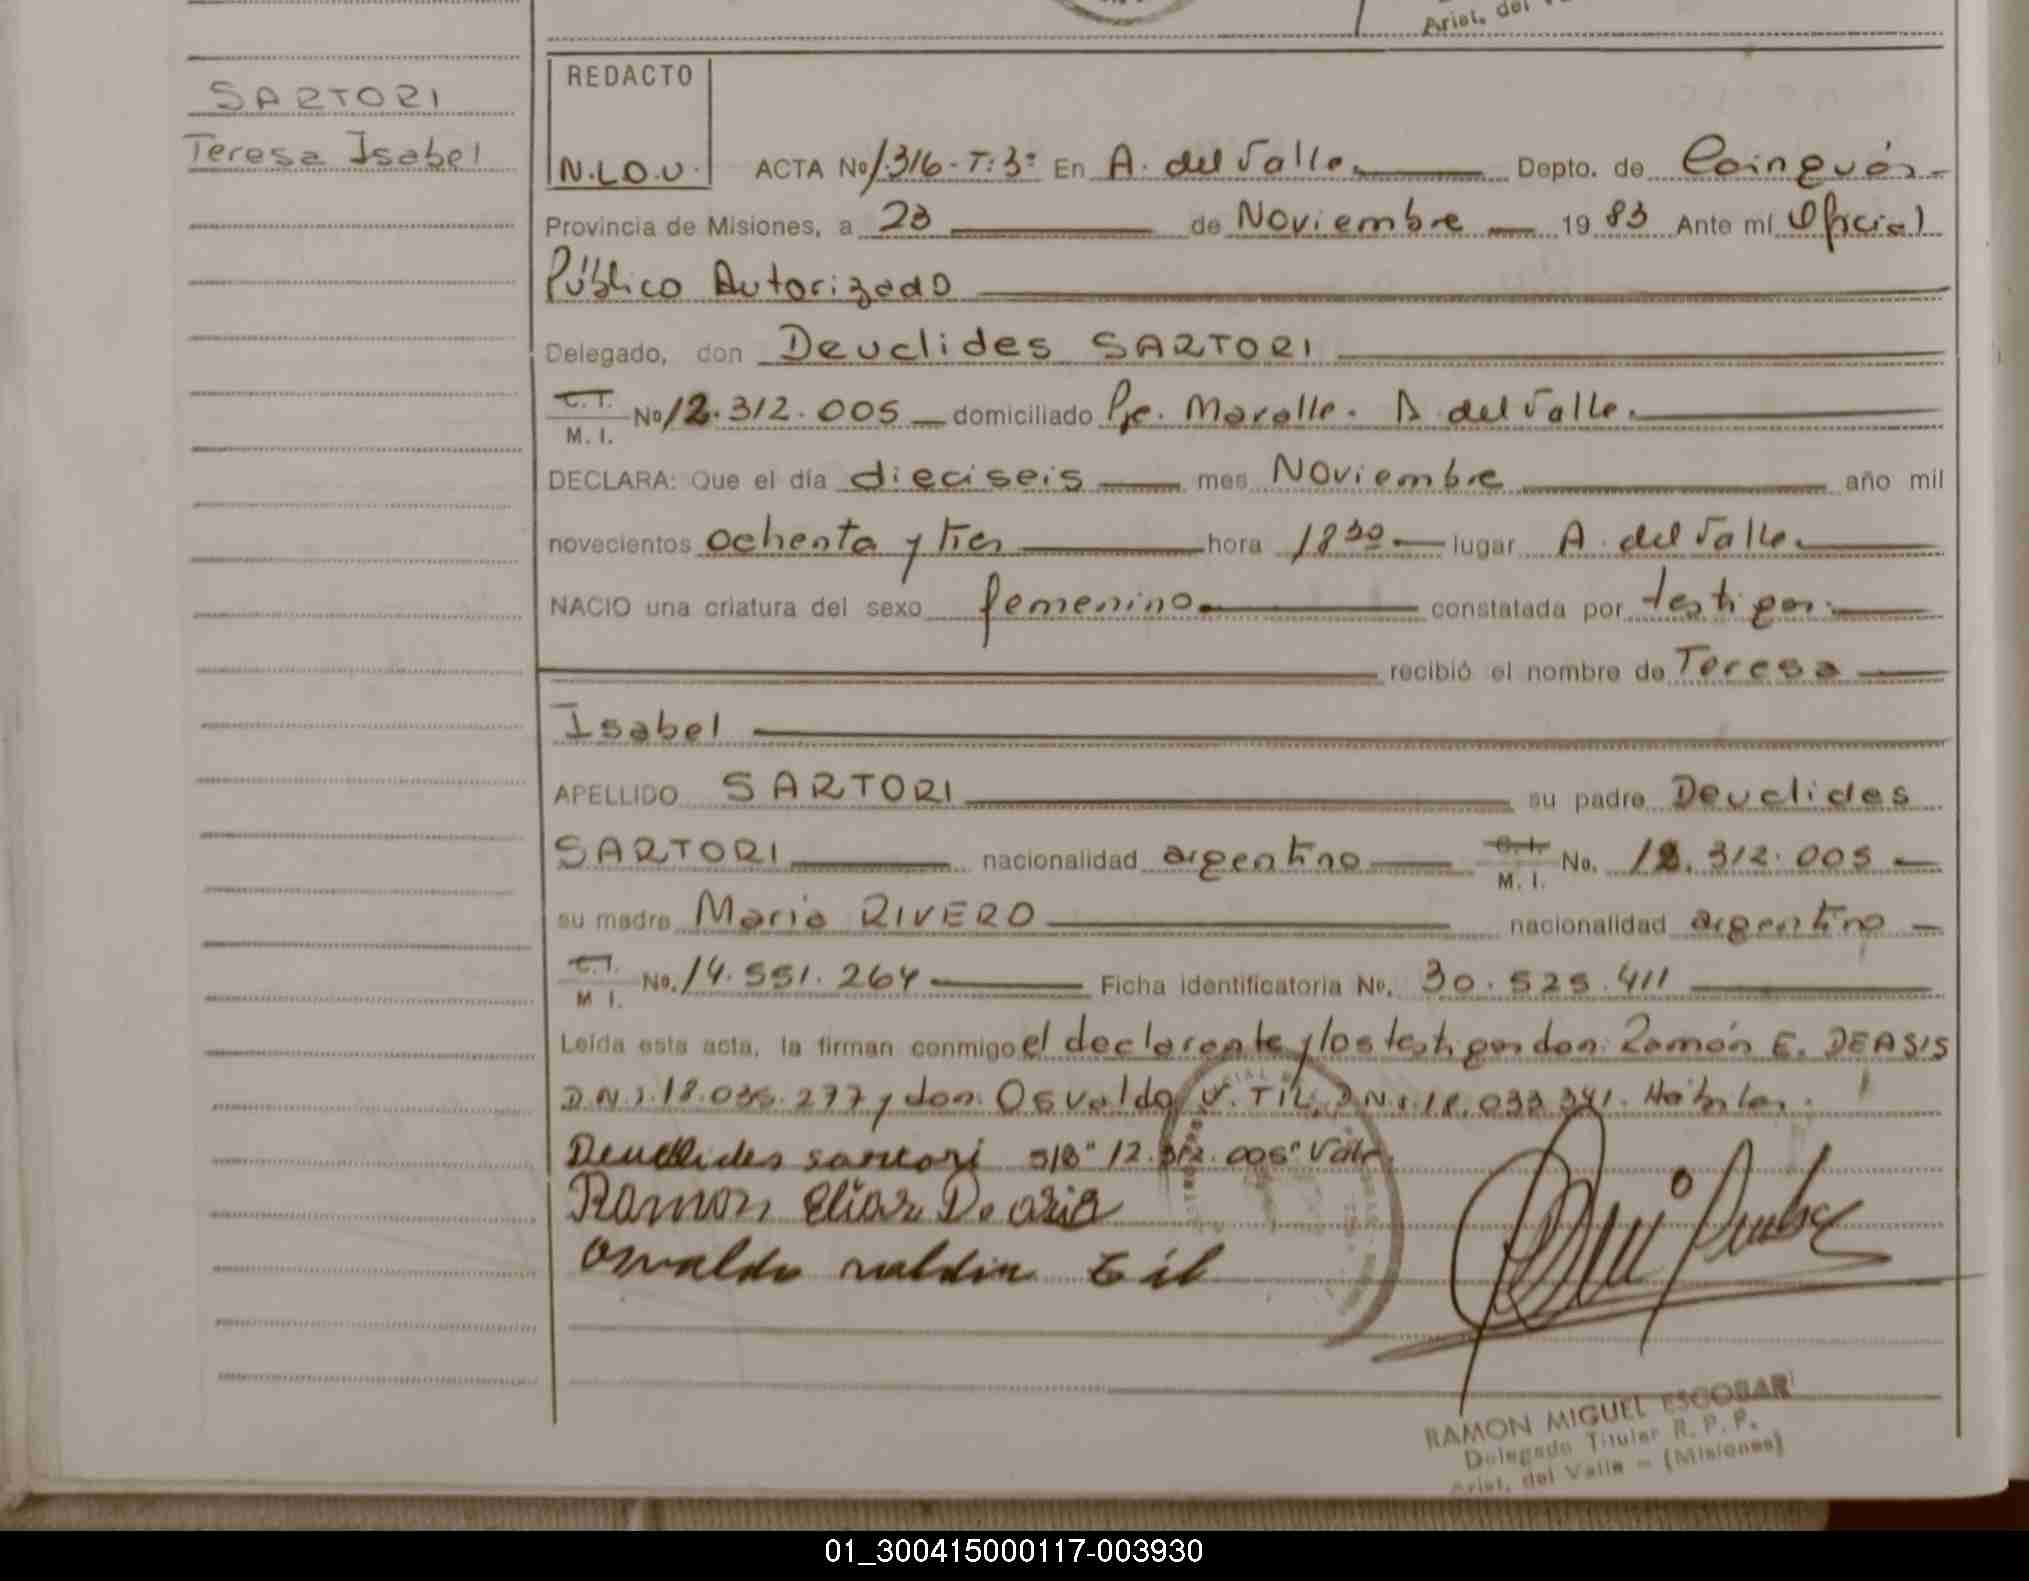 Arist. del V
SARTORI
Teresa Isabel
REDACTO
N.L.O.U.
ACTA Nº 1.316 - T: 3º En A. del Valle Depto. de Cainguás
Provincia de Misiones, a 23 de Noviembre 1983 Ante mí Oficial
Público Autorizado
Delegado, don Deuclides SARTORI
C.I. M. I. Nº 12.312.005 domiciliado Pje. Maralle. A. del Valle.
DECLARA: Que el día dieciseis mes Noviembre año mil
novecientos ochenta y tres hora 18 30 lugar A. del Valle
NACIO una criatura del sexo femenino constatada por testigos
recibió el nombre de Teresa
Isabel
APELLIDO SARTORI su padre Deuclides
SARTORI nacionalidad argentino C.I. M. I. No. 12.312.005
su madre Maria RIVERO nacionalidad argentino
C.I. M I. No. 14.551.264 Ficha identificatoria Nº. 30.525.411
Leída esta acta, la firman conmigo el declarante y los testigos don: Ramón E. DEASIS
D.N.I. 18.035.277 y don Osvaldo V. TIL, D.N.I. 18.033.341. Hábiles.
Deuclides sartori S/B "12.312.005" Vale.
Ramon Elias De asis
Osvaldo valdin til
RAMON MIGUEL ESCOBAR
Delegado Titular R. P. P.
Arist. del Valle - (Misiones)
01_300415000117-003930